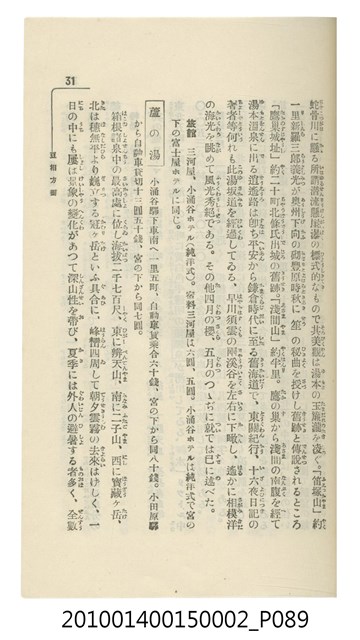 蛇骨川に懸る所謂潜流懸崖瀑の標式的なもので其美観は湯本の玉簾瀧を凌ぐ。「笛塚山」約
一里新羅三郎義光が奥州下向の砌豊原時秋に笙の秘曲を授けし舊跡と傳説されるところ
「鷹巣城址」約二十町北條氏出城の舊跡。「淺間山」約半里。鷹の巣から淺間の南腹を經て
湯本温泉に出る逍遥路は卽ち平安から鎌倉時代に至る舊海道で、東關紀行、十六夜日記の
著者等何れも此湯坂道を經過してゐる、早川須雲の兩溪谷を左右に下瞰し、遙かに相模洋
の海光を眺めて風光秀絶である。その他四月の櫻、五月のつゝぢに就ては旣に述べた。
旅館 三河屋、小涌谷ホテル(純洋式)。宿料三河屋は六圓、五圓。小涌谷ホテルは純洋式で宮の
下の富士屋ホテルに同じ。
蘆の湯 小涌谷驛下車南へ一里五町、自動車賃乗合六十錢、宮の下から同八十錢。小田原驛
から自動車貸切十三圓五十錢、宮の下から同七圓。
箱根諸泉中の最高處に位し海拔二千七百尺、東に辨天山、南に二子山、西に寶藏ヶ岳、
北は種無平より續立する冠ヶ岳といふ具合に、峰巒四周して朝夕雲霧の去來はげしく、一
日の中にも屡々景象の變化があつて深山性を帯び、夏季には外人の避暑する者多く、全數
豆相方面
31
201001400150002_P089